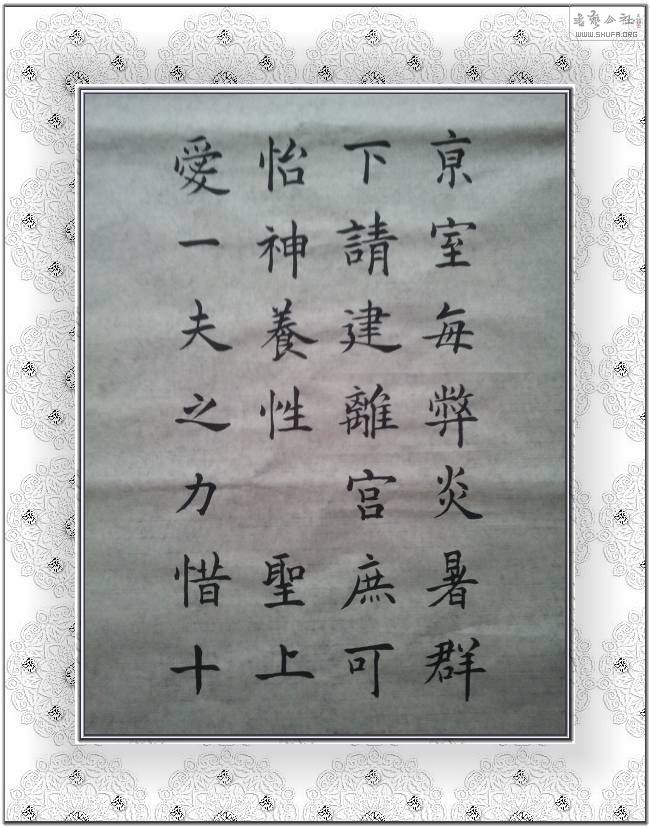 京室每弊炎暑群
下請建離宮庶可
怡神養性 聖上
愛一夫之力惜十
書藝公社
WWW.SHUFA.ORG